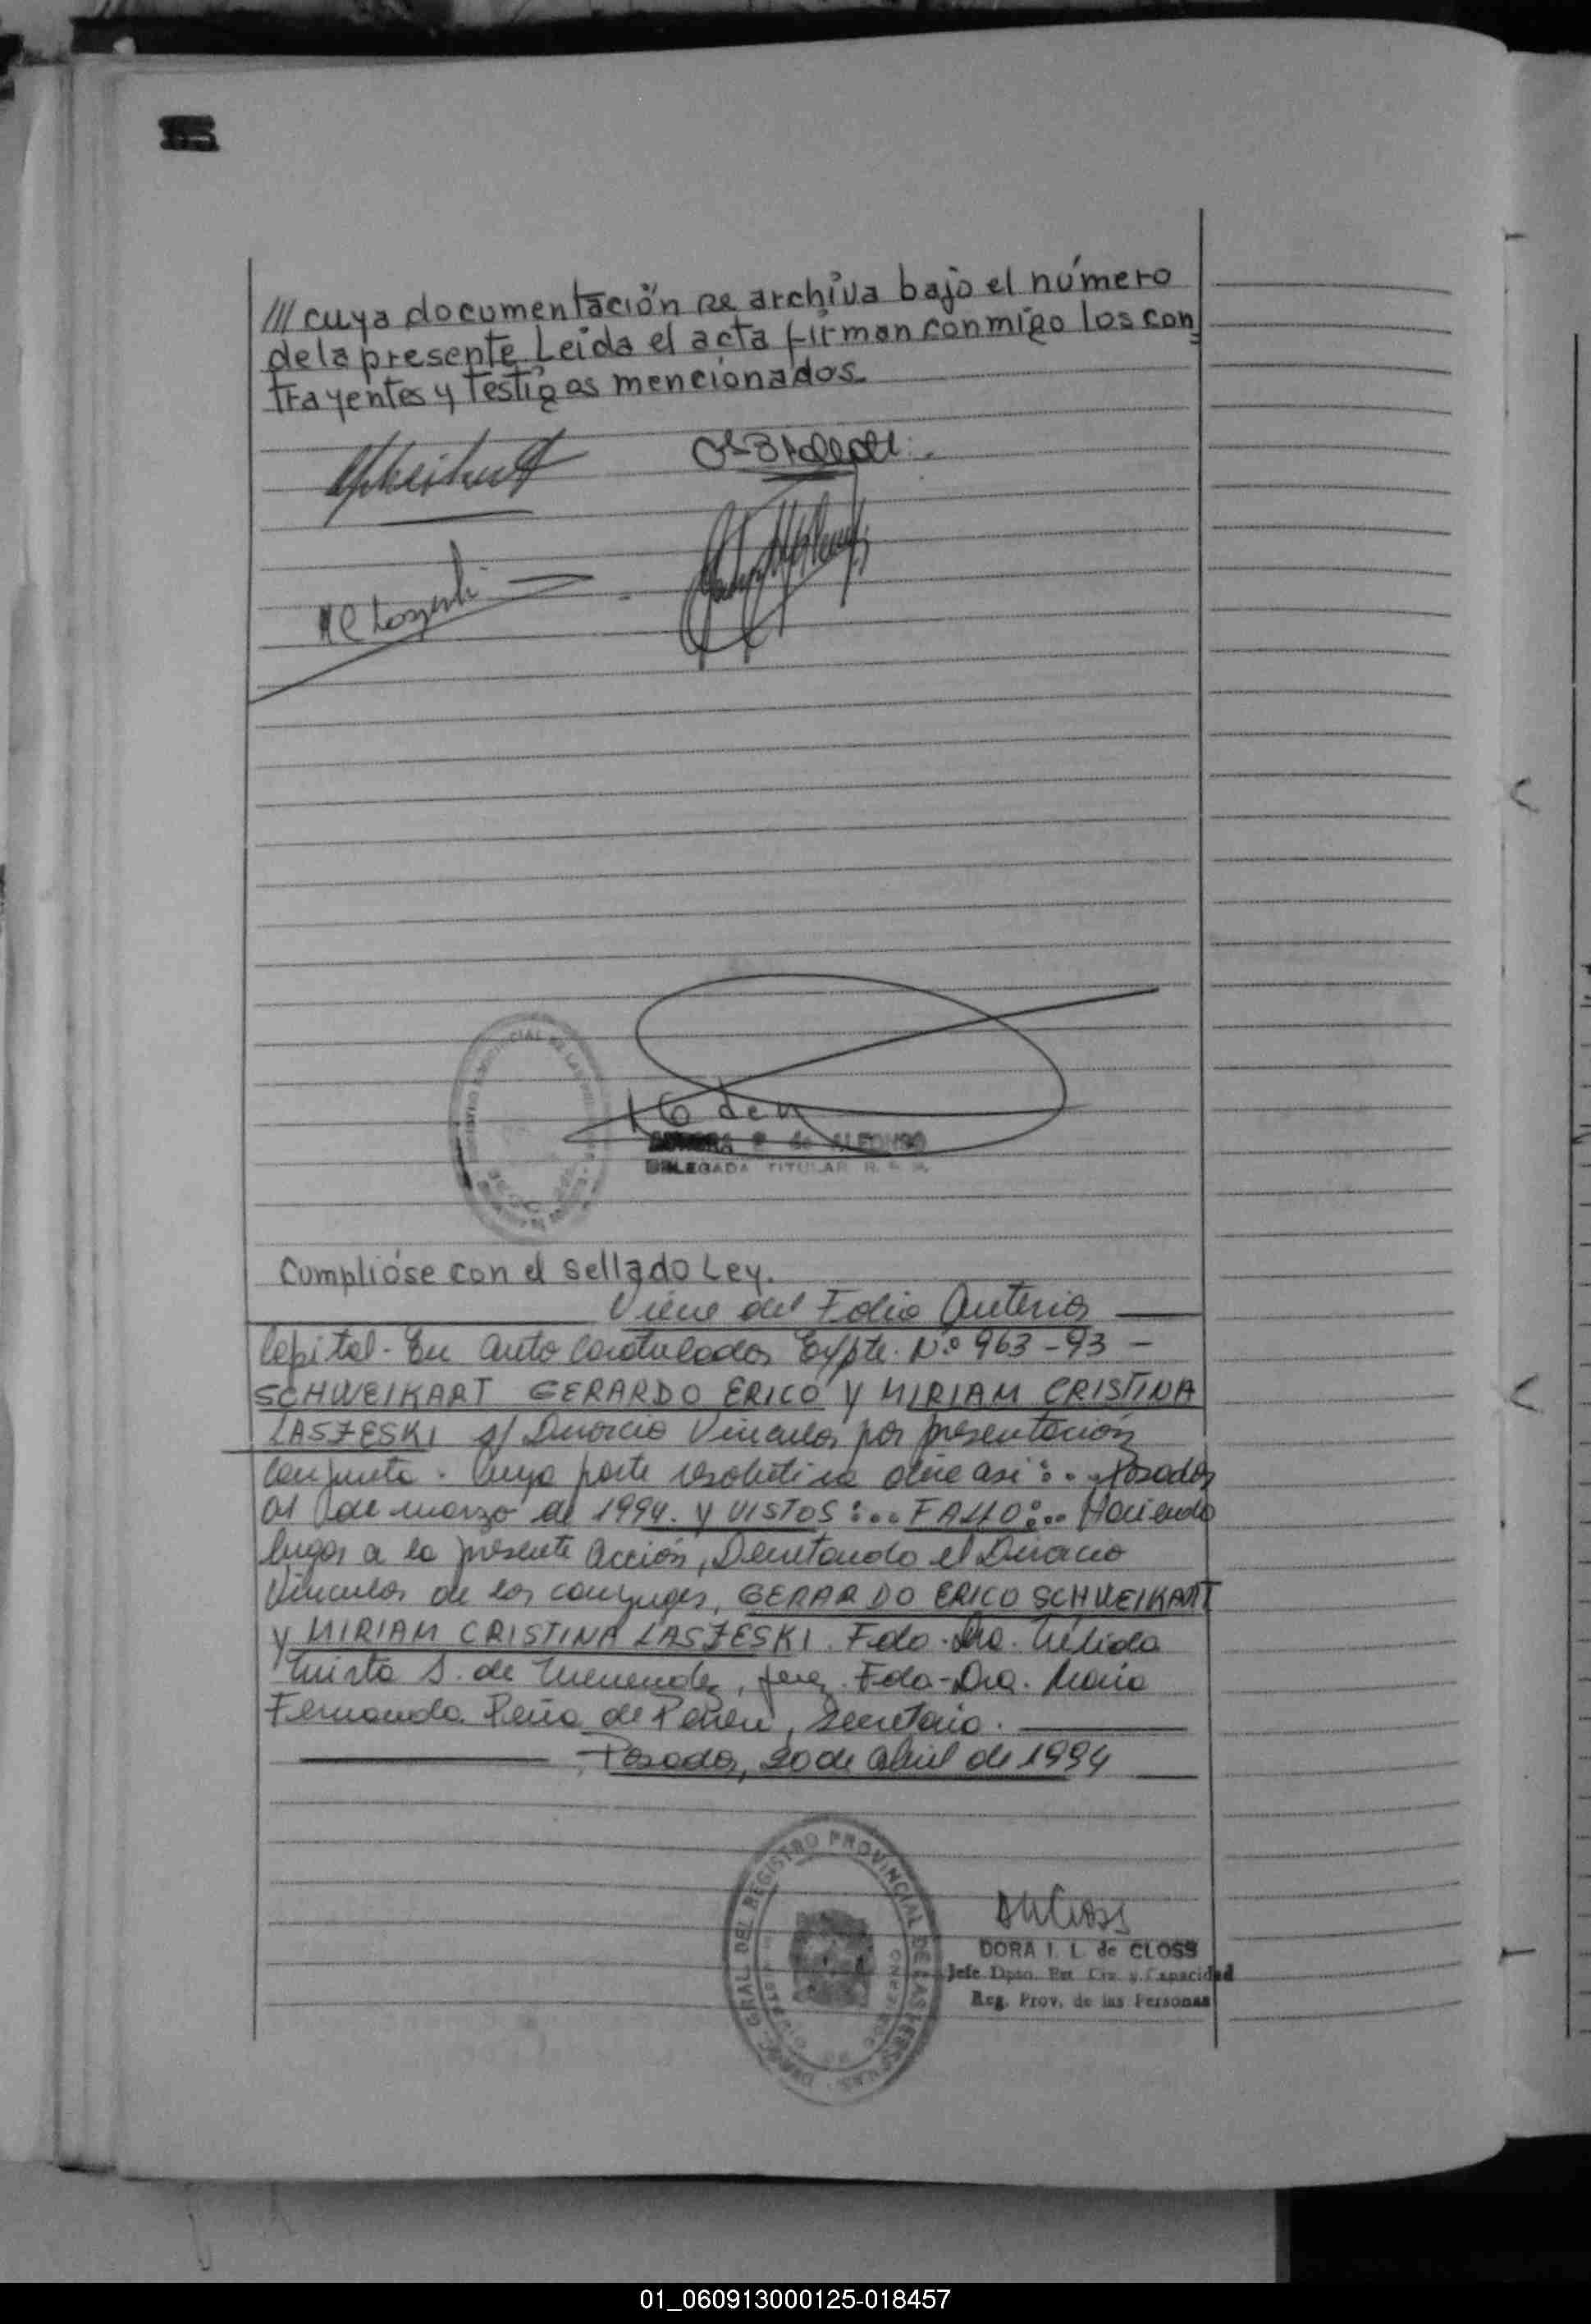 /// cuya documentación se archiva bajo el número
de la presente Leida el acta firman conmigo los con
trayentes y testigos mencionados.
DELEGADA TITULAR
Cumplióse con el sellado Ley.
Viene del Folio Anterior
Capital - En auto Caratulados Expte. Nº 963-93 -
SCHWEIKART GERARDO ERICO Y MIRIAM CRISTINA
LASZESKI s/ Divorcio Vincular por presentación
Conjunta. Cuya parte resolutiva dice asi: .. Posadas
01 de marzo de 1994. Y VISTOS:... FALLO:... Haciendo
lugar a la presente acción, Decretando el Divorcio
Vincular de los conyuges, GERARDO ERICO SCHWEIKART
Y MIRIAM CRISTINA LASZESKI. Fdo. Dra. Nélida
Mirta S. de Menendez, Juez. Fdo-Dra. María
Fernanda Peña de, Secretaria.
Posadas, 20 de abril de 1994
GRAL. DEL REGISTRO PROVINCIAL DE LAS PERSONAS
DORA I. L. de CLOSS
Jefe Dpto. Est. Civ. y Capacidad
Reg. Prov. de las Personas
01_060913000125-018457